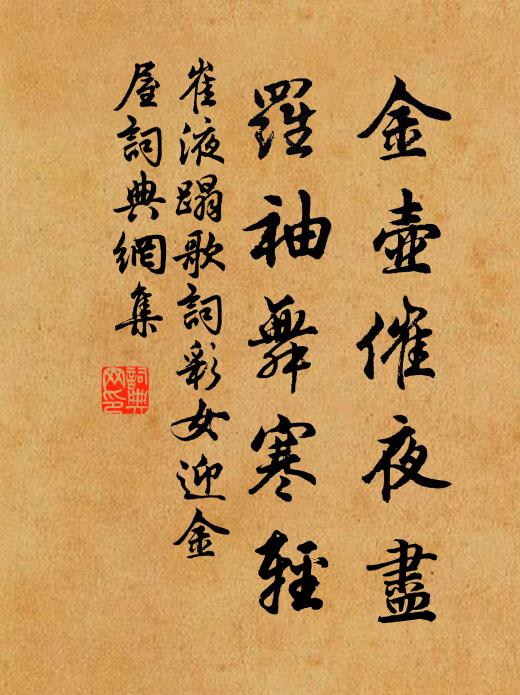 金壺催夜盡
羅袖舞寒輕
崔液蹋歌詞彩女迎金
屋詞典網集
詞典網印